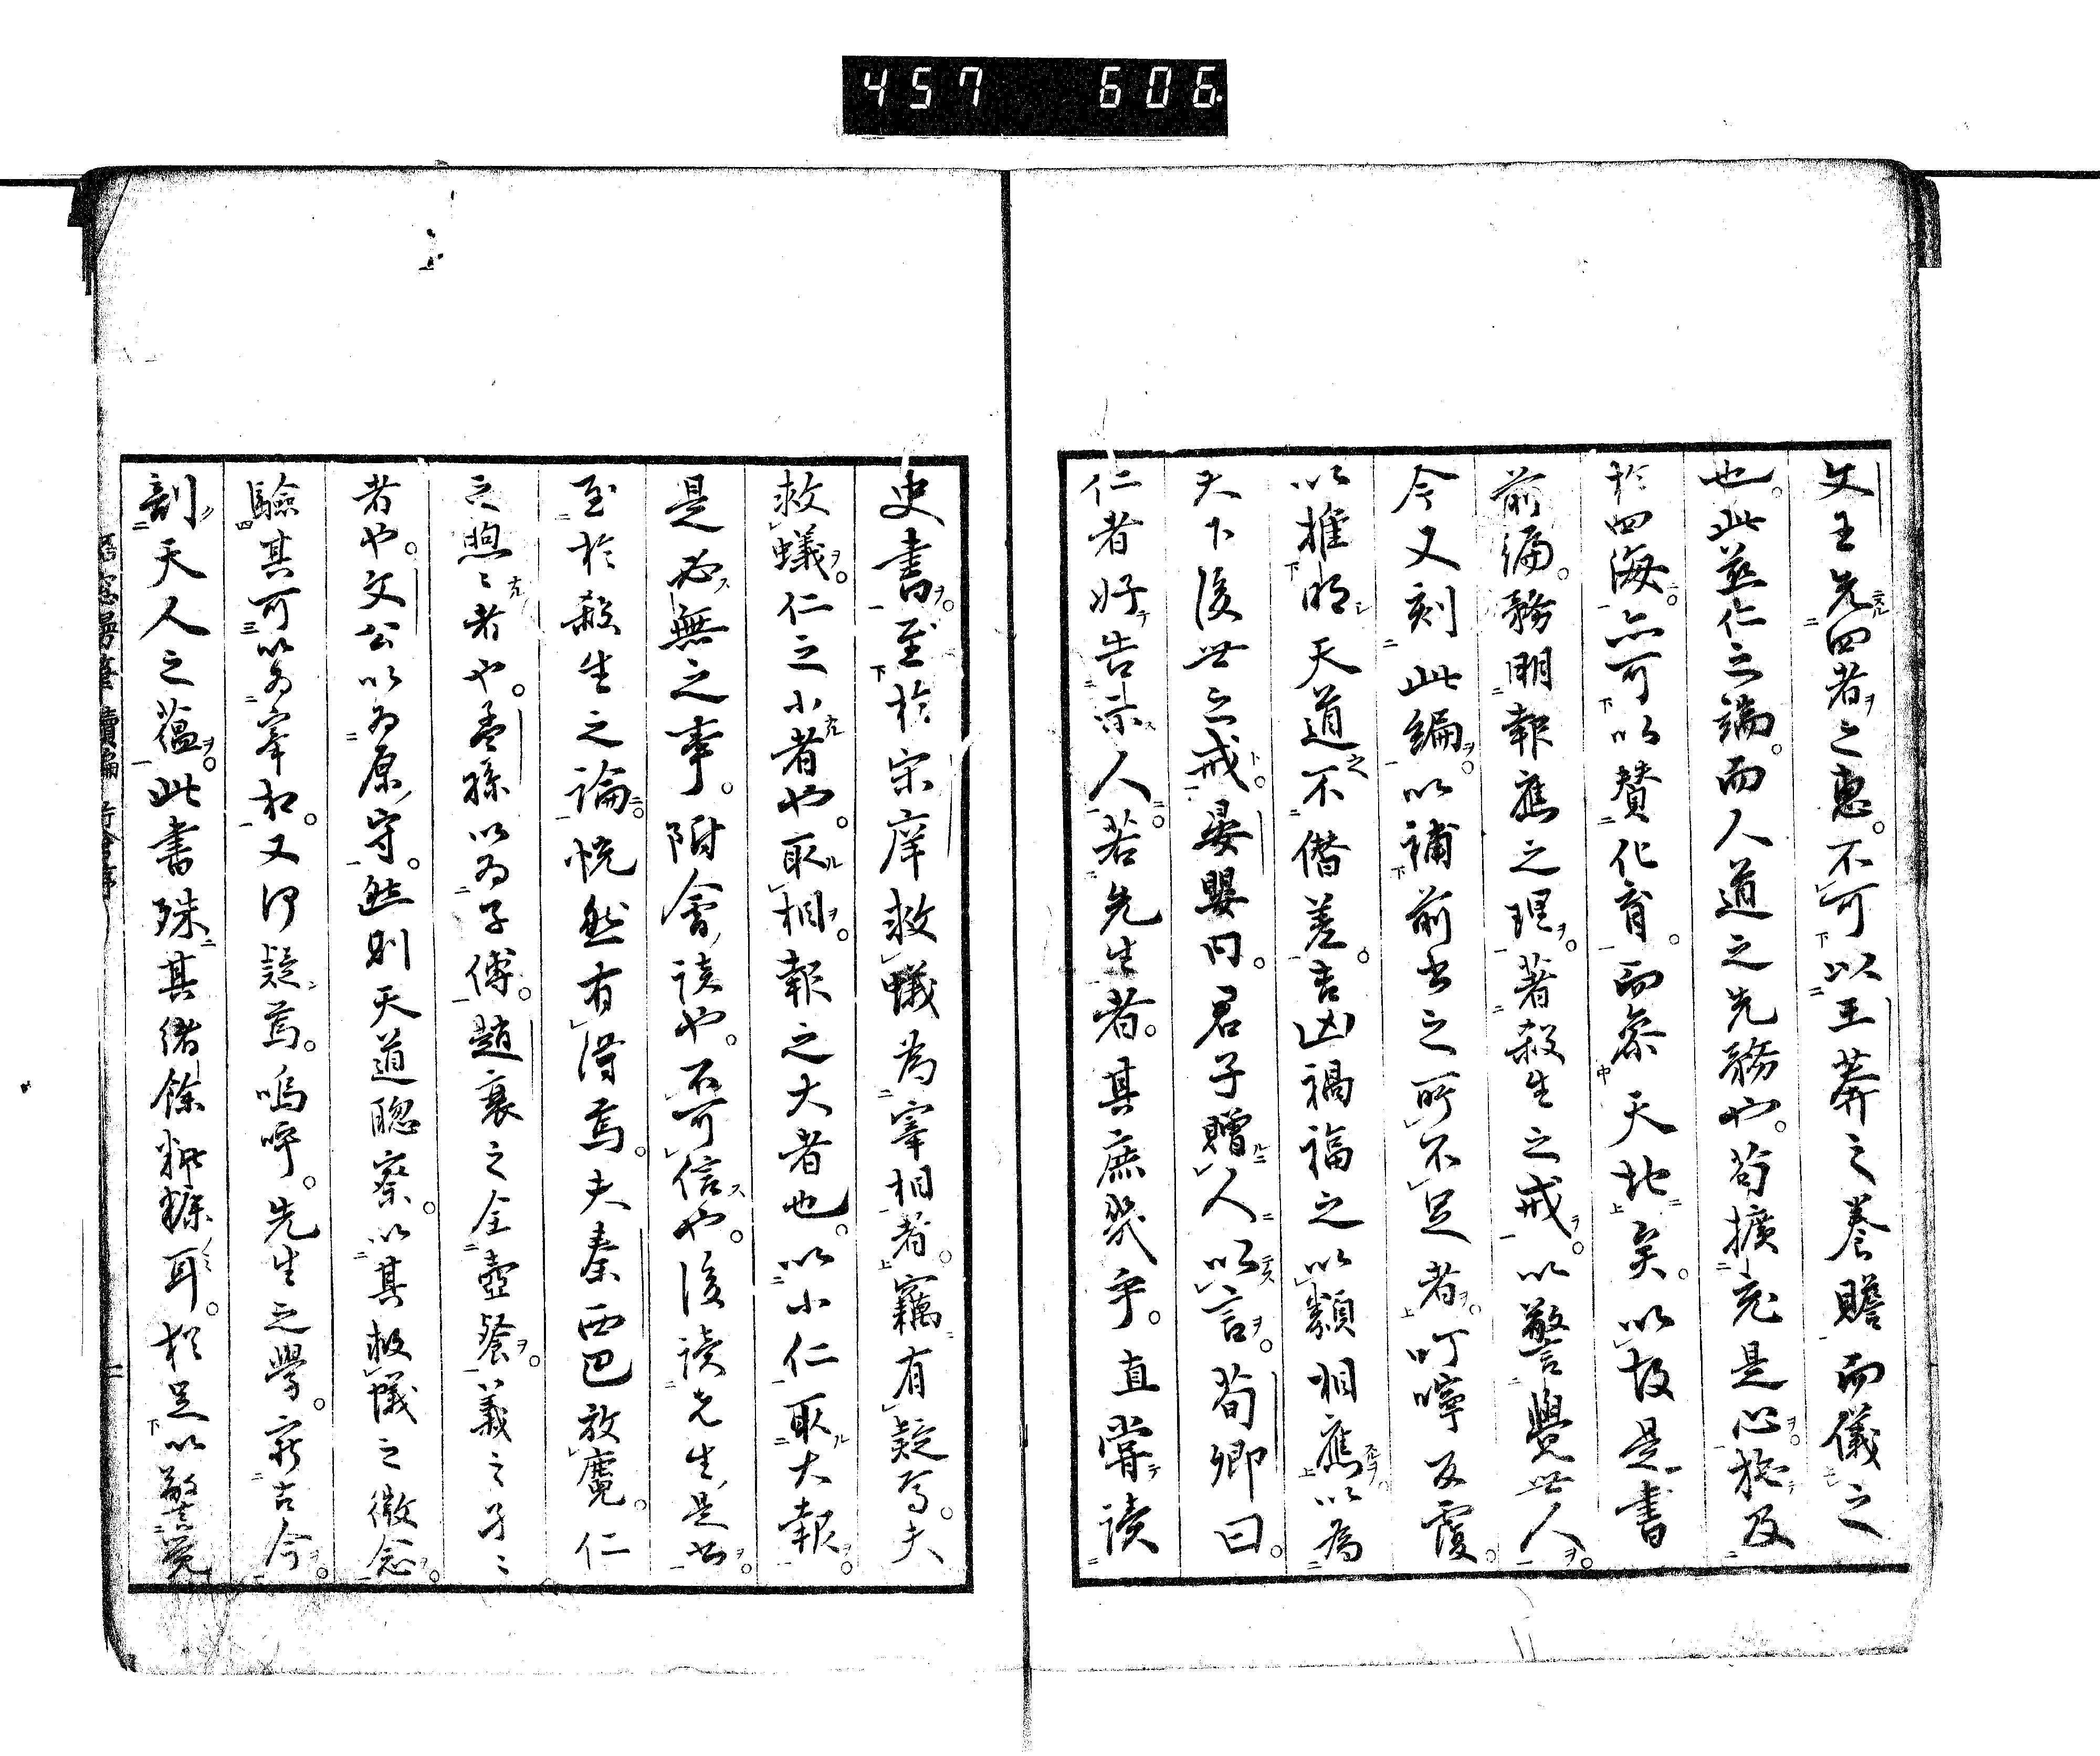 457 606
文王先四者之惠。不可以王莽之養贍而儀之
也。此並仁之端。而人道之先務也。苟擴充是心施及
於四海。亦可以賛化育。而參天地矣。以故是書
前編。務明報應之理。著殺生之戒。以警覺世人。
今又刻此編。以補前書之所不足者。叮嚀反覆。
以推明天道不僭差。吉凶禍福之以類相應。以為
天下後世之戒。晏嬰曰。君子贈人以言。荀卿曰。
仁者好告示人。若先生者。其庶幾乎。直嘗讀
史書。至於宋庠救蟻為宰相者。竊有疑焉。夫
救蟻。仁之小者也。取相。報之大者也。以小仁取大報。
是必無之事。附會讀也。不可信也。後讀先生是書。
至於殺生之論。恍然有得焉。夫秦西巴放麑。仁
之煦〻者也。孟孫以為子傅。趙衰之全壺飱。義之孑〻
者也。文公以為原守。然則天道聰察。以其救蟻之微念。
驗其可以為宰相。又何疑焉。嗚呼。先生之學。窮古今。
剖天人之蘊。此書殊其緒餘粃糠耳。猶足以警覚
續編